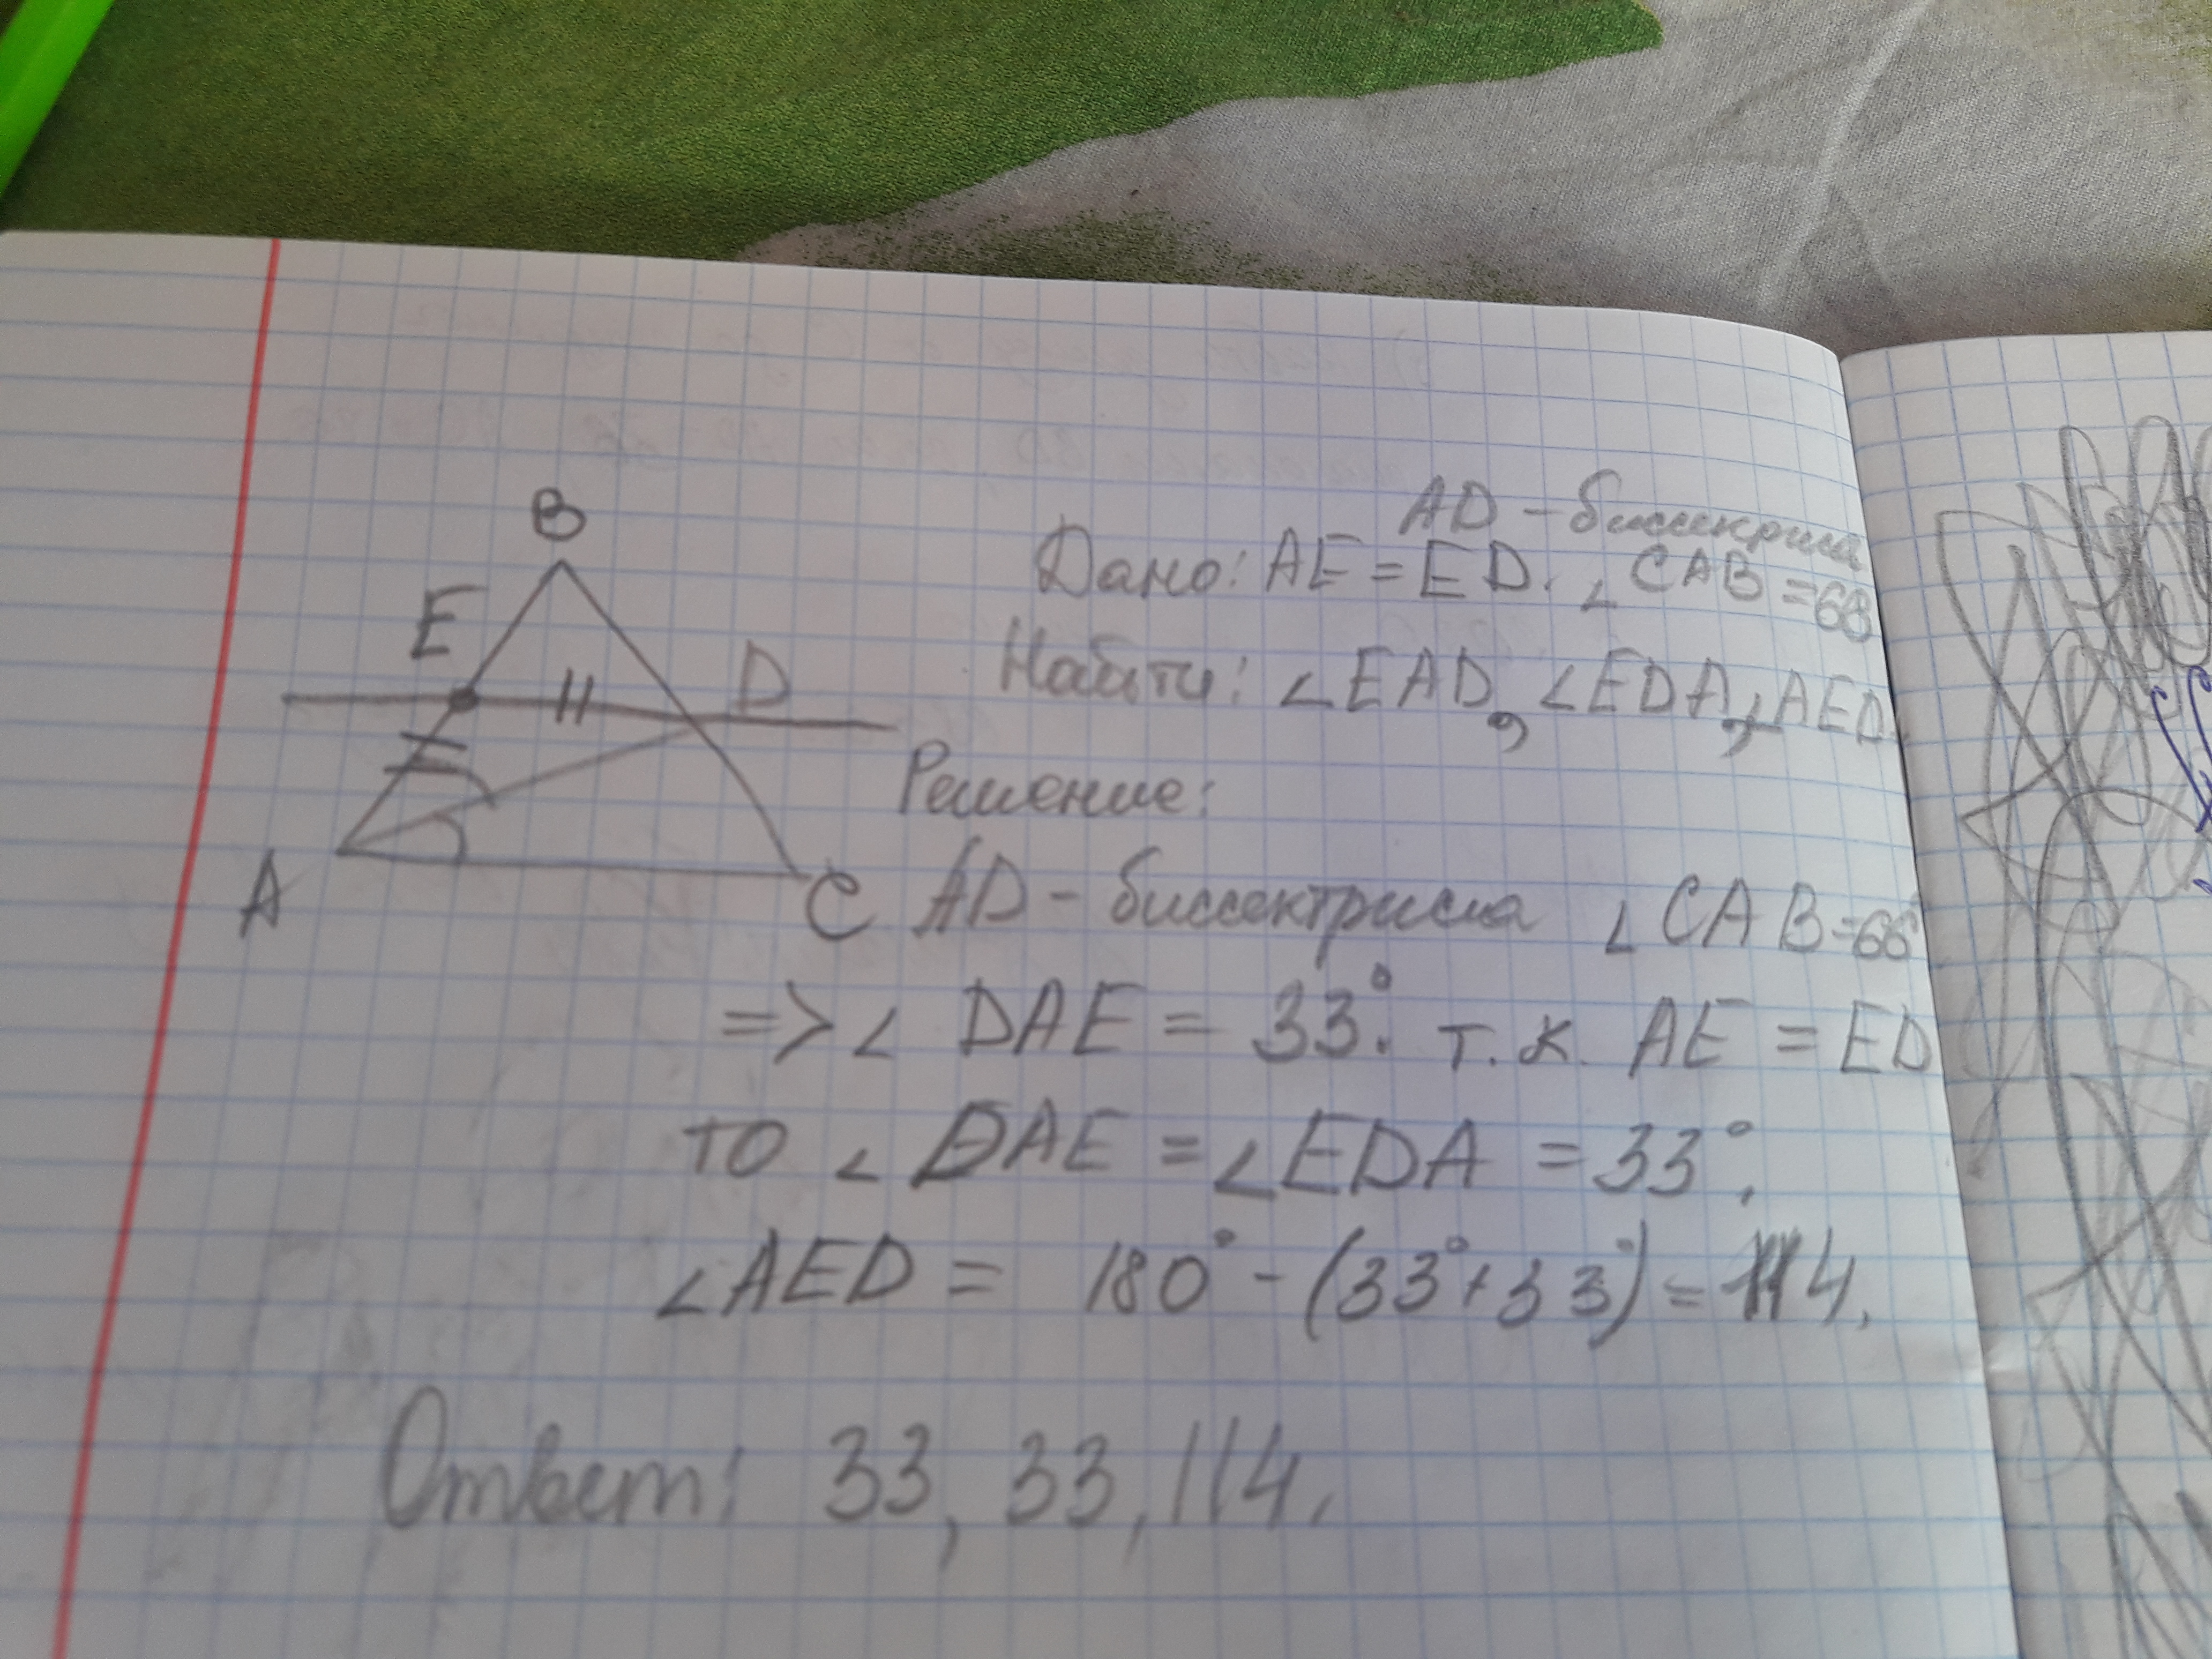 B
E
D
A
C
AD - биссектриса
Дано: AE = ED. ∠CAB = 68
Найти: ∠EAD, ∠EDA, ∠AED.
Решение:
AD - биссектриса ∠CAB = 66°
=> ∠DAE = 33°. т.к. AE = ED
то ∠DAE = ∠EDA = 33°.
∠AED = 180° - (33° + 33°) = 114.
Ответ: 33, 33, 114.